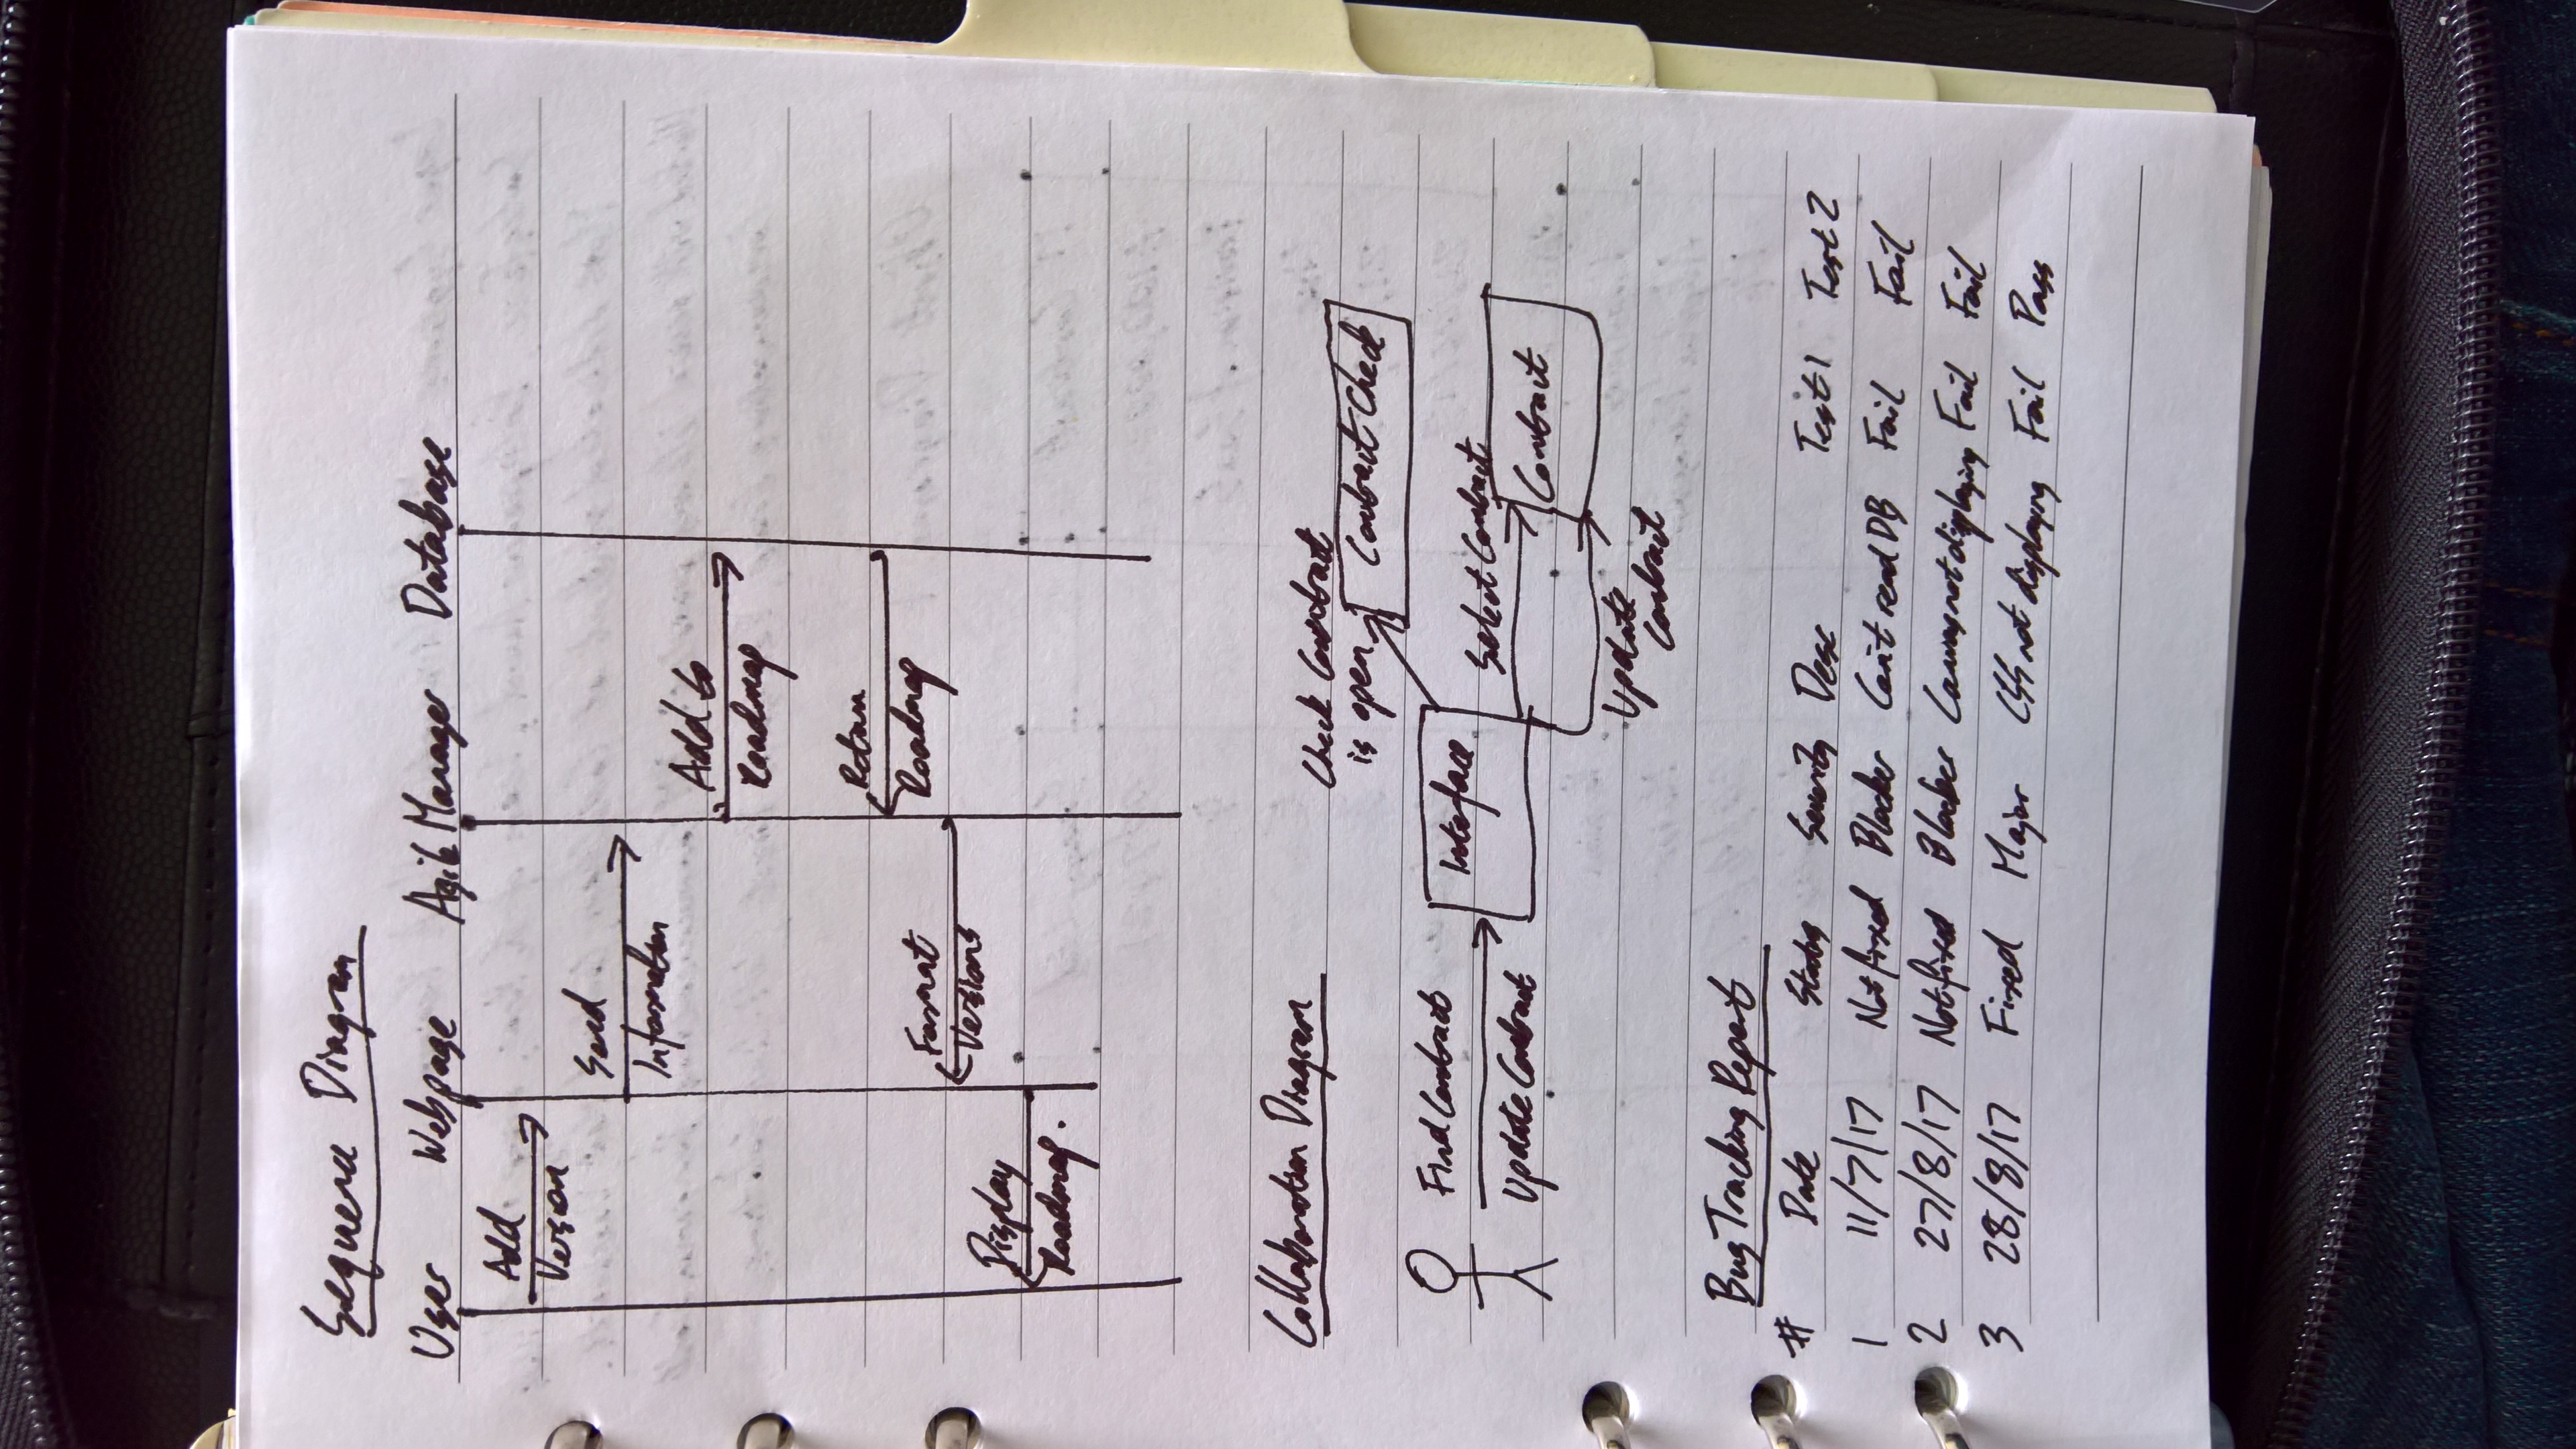 Sequence Diagram
User Webpage Agile Manager Database
Add
Version
Send
Information
Add to
Roadmap
Return
Roadmap
Format
Versions
Display
Roadmap.
Collaboration Diagram
Check Contract
is open
Contract Check
Find Contract
Update Contract
Interface
Select Contract
Contract
Update
Contract
Bug Tracking Report
# Date Status Severity Desc Test 1 Test 2
1 11/7/17 Not fixed Blocker Can't read DB Fail Fail
2 27/8/17 Not fixed Blocker Canvas not displaying Fail Fail
3 28/8/17 Fixed Major CSS not displaying Fail Pass